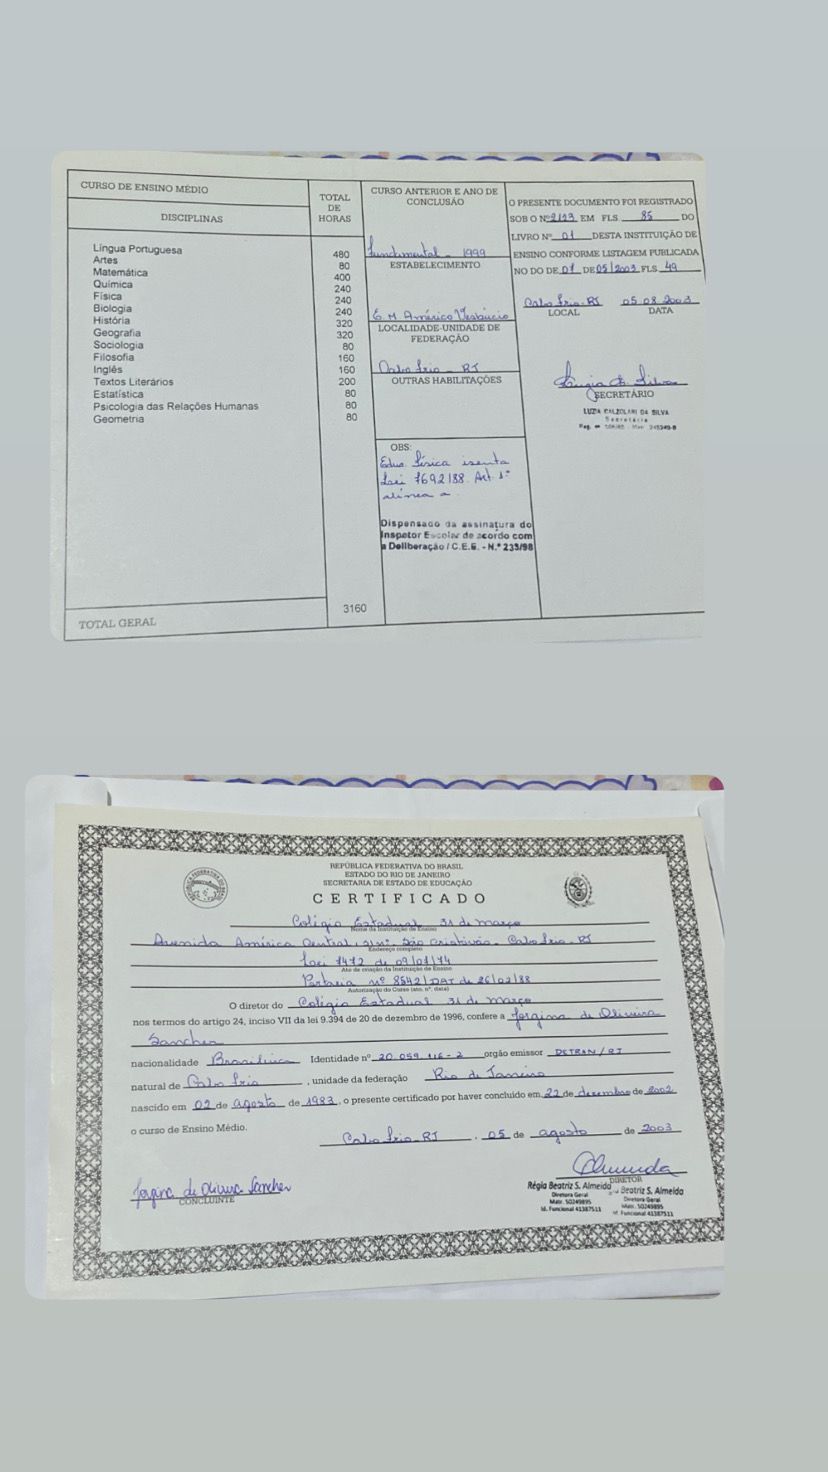 CURSO DE ENSINO MÉDIO
DISCIPLINAS
TOTAL
DE
HORAS
Língua Portuguesa 480
Artes 80
Matemática 400
Química 240
Física 240
Biologia 240
História 320
Geografia 320
Sociologia 80
Filosofia 160
Inglês 160
Textos Literários 200
Estatística 80
Psicologia das Relações Humanas 80
Geometria 80
TOTAL GERAL 3160
CURSO ANTERIOR E ANO DE
CONCLUSÃO
Fundamental - 1999
ESTABELECIMENTO
E. M Américo Vespúcio
LOCALIDADE-UNIDADE DE
FEDERAÇÃO
Cabo Frio - RJ
OUTRAS HABILITAÇÕES
OBS:
Educ. Física isenta
Lei 7692/88. Art. 1º
alínea a.
Dispensado da assinatura do
Inspetor Escolar de acordo com
a Deliberação / C.E.E. - N.º 235/98
O PRESENTE DOCUMENTO FOI REGISTRADO
SOB O Nº 2123 EM FLS 85 DO
LIVRO Nº 01 DESTA INSTITUIÇÃO DE
ENSINO CONFORME LISTAGEM PUBLICADA
NO DO DE 01 DE 05/2003 FLS 49
Cabo Frio. RJ 05 08 2003
LOCAL DATA
SECRETÁRIO
LUZIA CALZOLARI DA SILVA
Secretária
REPÚBLICA FEDERATIVA DO BRASIL
ESTADO DO RIO DE JANEIRO
SECRETARIA DE ESTADO DE EDUCAÇÃO
CERTIFICADO
Colégio Estadual 31 de março
Nome da Instituição de Ensino
Avenida América Central, s/nº São Cristóvão. Cabo Frio. RJ
Endereço completo
Lei 1472 de 09/01/74
Ato de criação da Instituição de Ensino
Portaria nº 8542/DAT de 26/02/88
Autorização do Curso (ato, nº, data)
O diretor do Colégio Estadual 31 de março
nos termos do artigo 24, inciso VII da lei 9.394 de 20 de dezembro de 1996, confere a Jorgina de Oliveira
Sanches
nacionalidade Brasileira Identidade nº 20.059.116-2 orgão emissor DETRAN/RJ
natural de Cabo Frio, unidade da federação Rio de Janeiro
nascido em 02 de agosto de 1983, o presente certificado por haver concluído em 22 de dezembro de 2002
o curso de Ensino Médio.
Cabo Frio. RJ, 05 de agosto de 2003
Jorgina de Oliveira Sanches
CONCLUINTE
Almeida
DIRETOR
Régia Beatriz S. Almeida
Diretora Geral
Matr. 50249895
Id. Funcional 41387511
Beatriz S. Almeida
Diretora Geral
Matr. 50249895
Id. Funcional 41387511